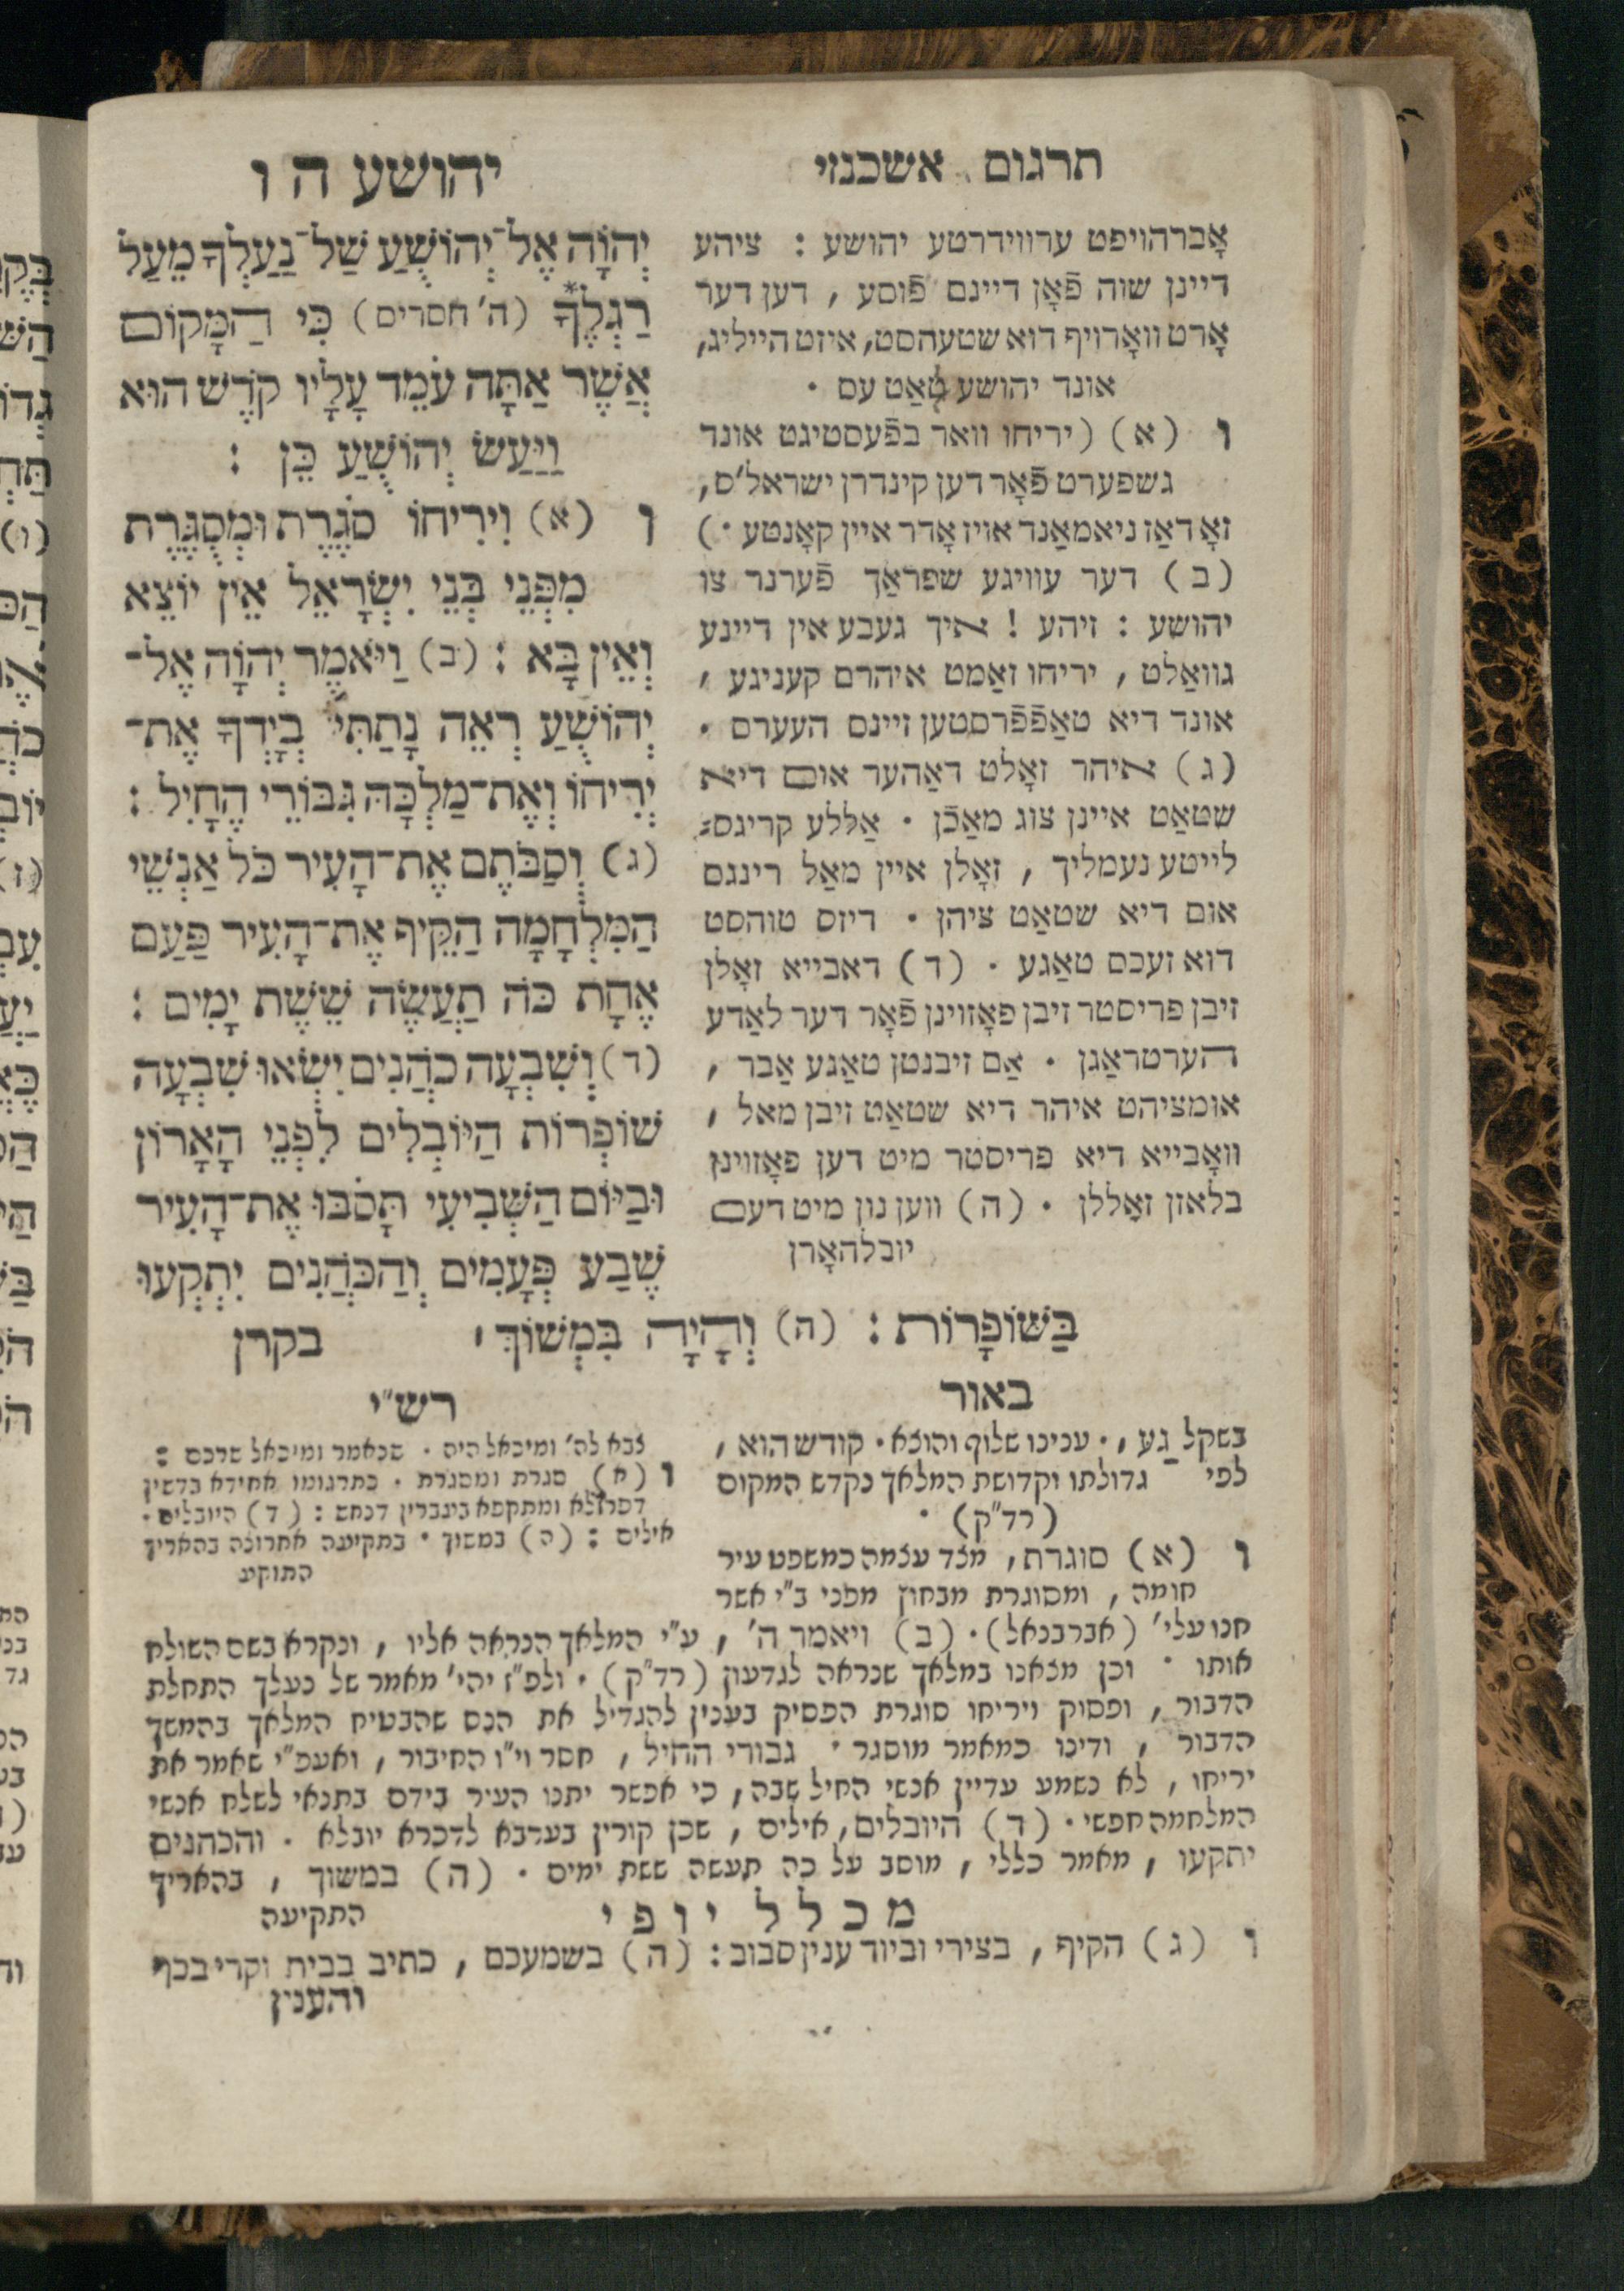 יהושע ה ו
תרגום אשכנזי
יְהוָֹה אֶל־יְהוֹשֻׁעַ שַׁל־נַעַלְךָ מֵעַל
רַגְלֶךָ* (ה' חסרים) כִּי הַמָּקוֹם
אֲשֶׁר אַתָּה עֹמֵד עָלָיו קֹדֶשׁ הוּא
וַיַּעַשׂ יְהוֹשֻׁעַ כֵּן :
ו (א) וִירִיחוֹ סֹגֶרֶת וּמְסֻגֶּרֶת
מִפְּנֵי בְּנֵי יִשְׂרָאֵל אֵין יוֹצֵא
וְאֵין בָּא : (ב) וַיֹּאמֶר יְהוָֹה אֶל־
יְהוֹשֻׁעַ רְאֵה נָתַתִּי בְיָדְךָ אֶת־
יְרִיחוֹ וְאֶת־מַלְכָּהּ גִּבּוֹרֵי הֶחָיִל :
(ג) וְסַבֹּתֶם אֶת־הָעִיר כֹּל אַנְשֵׁי
הַמִּלְחָמָה הַקֵּיף אֶת־הָעִיר פַּעַם
אֶחָת כֹּה תַעֲשֶׂה שֵׁשֶׁת יָמִים :
(ד) וְשִׁבְעָה כֹהֲנִים יִשְׂאוּ שִׁבְעָה
שׁוֹפְרוֹת הַיּוֹבְלִים לִפְנֵי הָאָרוֹן
וּבַיּוֹם הַשְּׁבִיעִי תָּסֹבּוּ אֶת־הָעִיר
שֶׁבַע פְּעָמִים וְהַכֹּהֲנִים יִתְקְעוּ
בַּשּׁוֹפָרוֹת : (ה) וְהָיָה בִּמְשׁוֹךְ
בקרן
אָברהויפט ערווידרטע יהושע : ציהע
דיינן שוה פֿאָן דיינם פֿוסע , דען דער
אָרט וואָרויף דוא שטעהסט, איזט הייליג,
אונד יהושע טאַט עס .
ו (א) (יריחו וואר בפֿעסטיגט אונד
גשפערט פֿאָר דען קינדרן ישראל'ס,
זאָ דאַז ניאמאַנד אויז אָדר איין קאָנטע .)
(ב) דער עוויגע שפראַך פֿערנר צו
יהושע : זיהע ! איך געבע אין דיינע
גוואַלט , יריחו זאַמט איהרם קעניגע ,
אונד דיא טאַפֿפֿרסטען זיינס העערס .
(ג) איהר זאָלט דאַהער אום דיא
שטאַט איינן צוג מאַכֿן . אַללע קריגס=
לייטע נעמליך , זאָלן איין מאַל רינגס
אום דיא שטאַט ציהן . דיזס טוהסט
דוא זעכס טאַגע . (ד) דאבייא זאָלן
זיבן פריסטר זיבן פאָזוינן פֿאָר דער לאַדע
הערטראַגן . אַם זיבנטן טאַגע אַבר ,
אומציהט איהר דיא שטאַט זיבן מאל ,
וואָבייא דיא פריסטר מיט דען פאָזוינן
בלאזן זאָללן . (ה) ווען נון מיט דעם
יובלהאָרן
רש״י
צבא לה' ומיכאל היה . שנאמר ומיכאל שרכם :
ו (א) סגרת ומסגרת . כתרגומו אחידא בדשין
דפרזלא ומתקפא בעברין דנחש : (ד) היובלים .
אילים : (ה) במשוך . בתקיעה אחרונה בהאריך
התוקע
באור
בשקל גע . ענינו שלוף והוצא . קודש הוא ,
לפי גדולתו וקדושת המלאך נקדש המקום
(רד״ק) .
ו (א) סוגרת , מצד עצמה כמשפט עיר
חומה , ומסוגרת מבחוץ מפני ב״י אשר
חנו עלי' (אברבנאל) . (ב) ויאמר ה' , ע״י המלאך הנראה אליו , ונקרא בשם השולח
אותו . וכן מצאנו במלאך שנראה לגדעון (רד״ק) . ולפ״ז יהי' מאמר של נעלך התחלת
הדבור , ופסוק ויריחו סוגרת הפסיק בענין להגדיל את הנס שהבטיח המלאך בהמשך
הדבור , ודינו כמאמר מוסגר . גבורי החיל , חסר וי״ו החיבור , ואעפ״י שאמר את
יריחו , לא נשמע עדיין אנשי החיל שבה , כי אפשר יתנו העיר בידם בתנאי לשלח אנשי
המלחמה חפשי . (ד) היובלים , אילים , שכן קורין בערבא לדכרא יובלא . והכהנים
יתקעו , מאמר כללי , מוסב על כה תעשה ששת ימים . (ה) במשוך , בהאריך
התקיעה
מכלל יופי
ו (ג) הקיף , בצירי וביוד ענין סבוב : (ה) בשמעכם , כתיב בבית וקרי בכף
והענין